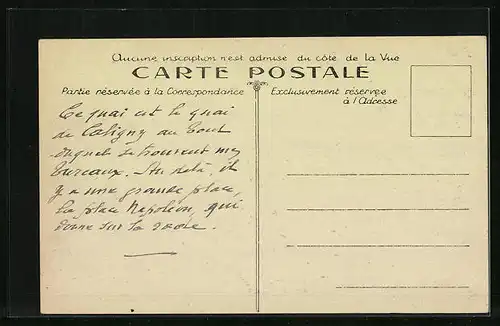 Aucune inscription n'est admise du côté de la Vue
CARTE POSTALE
Partie réservée à la Correspondance
Exclusivement réservée
à l'Adresse
Ce quai est le quai
de Caligny au bout
duquel se trouvent mes
bureaux. Au delà, il
y a une grande place,
la place Napoléon, qui
donne sur la rade.